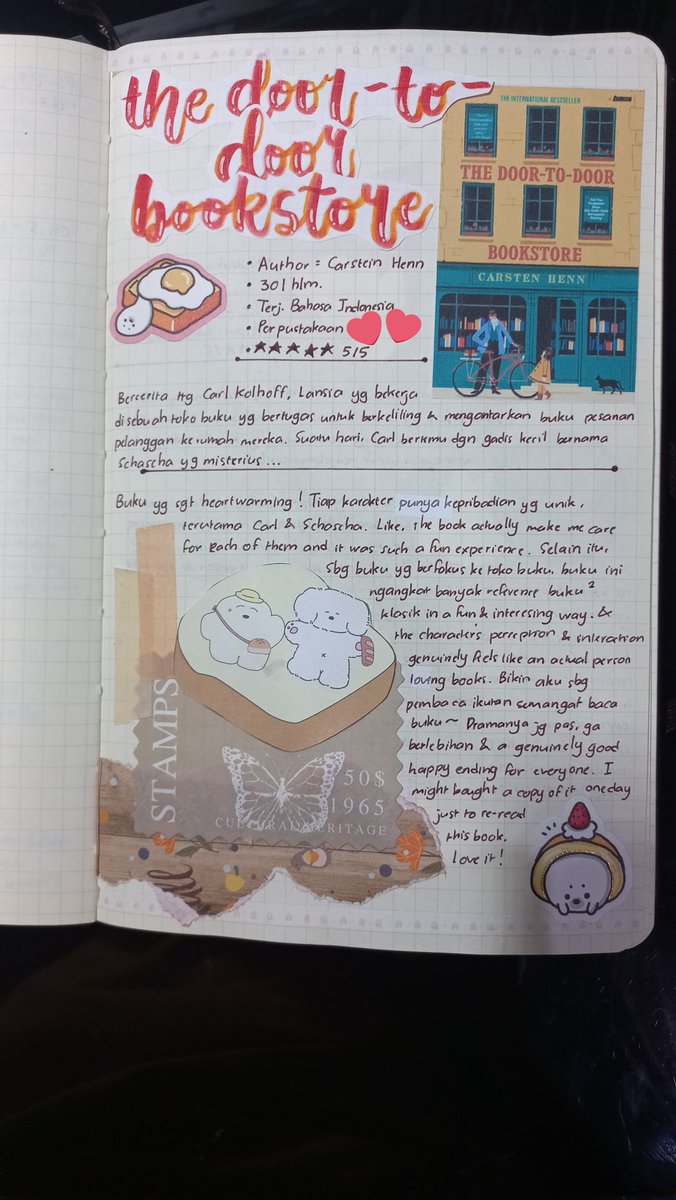 the door-to-
door
bookstore
THE INTERNATIONAL BESTSELLER
THE DOOR-TO-DOOR
BOOKSTORE
CARSTEN HENN
• Author = Carstein Henn
• 301 hlm.
• Terj. Bahasa Indonesia
• Perpustakaan
• ★★★★★ 5/5
Bercerita ttg Carl Kolhoff, Lansia yg bekerja
di sebuah toko buku yg bertugas untuk berkeliling & mengantarkan buku pesanan
pelanggan ke rumah mereka. Suatu hari, Carl bertemu dgn gadis kecil bernama
Schascha yg misterius ...
Buku yg sgt heartwarming! Tiap karakter punya kepribadian yg unik,
terutama Carl & Schascha. Like, the book actually make me care
for each of them and it was such a fun experience. Selain itu,
sbg buku yg berfokus ke toko buku, buku ini
ngangkat banyak reference buku²
klasik in a fun & interesing way. &
the characters' perception & interation
genuinely feels like an actual person
loving books. Bikin aku sbg
pembaca ikutan semangat baca
buku~ Dramanya jg pas, ga
berlebihan & a genuinely good
happy ending for everyone. I
might bought a copy of it one day
just to re-read
this book.
Love it!
STAMPS
50$
1965
CULTURAL HERITAGE